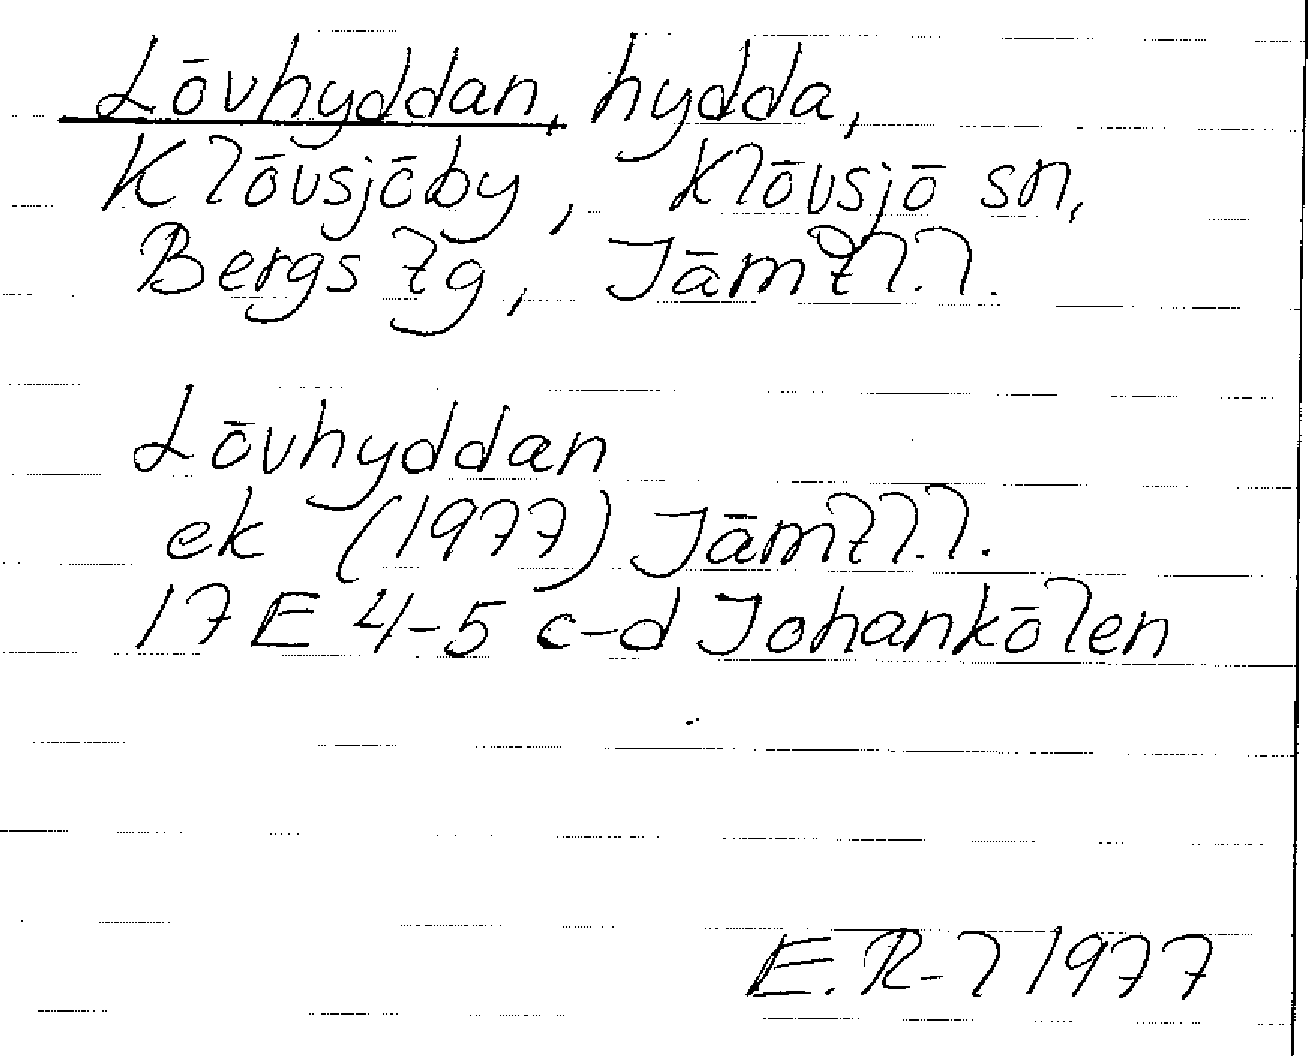 Lövhyddan, hydda,
Klövsjöby, Klövsjö sn,
Bergs tg, Jämtl.l.
Lövhyddan
ek (1977) Jämtl.l.
17 E 4-5 c-d Johankölen
E.R-l 1977